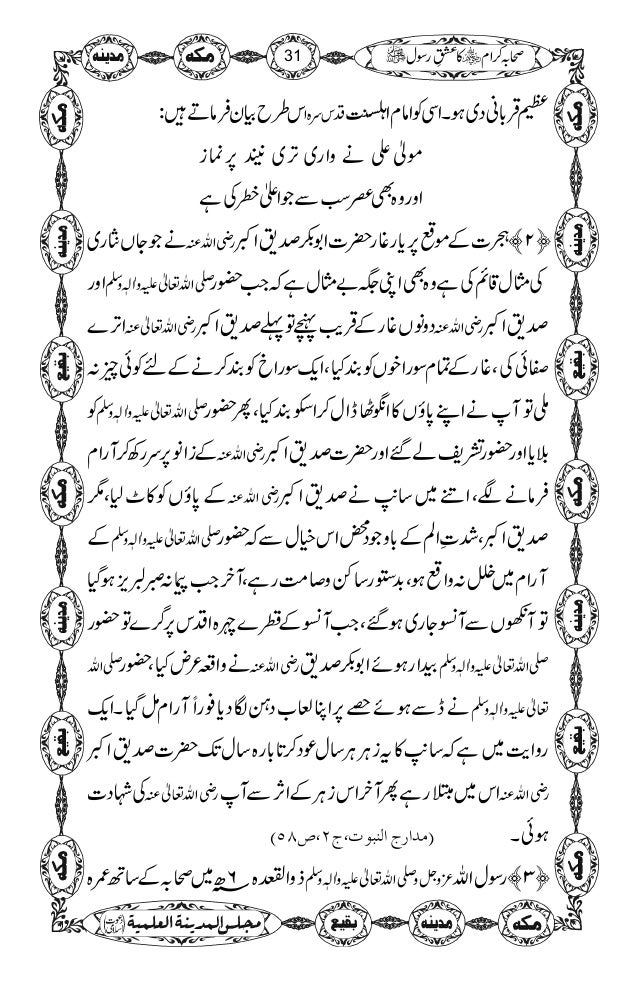 مدینہ مکہ 31 صحابہ کرام ﷺ کا عشق رسول ﷺ
عظیم قربانی دی ہو۔ اسی کو امام اہلسنت قدس سرہ اس طرح بیان فرماتے ہیں:
مولیٰ علی نے واری تری نیند پر نماز
اور وہ بھی عصر سب سے جو اعلیٰ خطر کی ہے
﴿۲﴾ ہجرت کے موقع پر یار غار حضرت ابوبکر صدیق اکبر رضی اللہ عنہ نے جو جاں نثاری
کی مثال قائم کی ہے وہ بھی اپنی جگہ بے مثال ہے کہ جب حضور صلی اللہ تعالیٰ علیہ والہٖ وسلم اور
صدیق اکبر رضی اللہ عنہ دونوں غار کے قریب پہنچے تو پہلے صدیق اکبر رضی اللہ تعالیٰ عنہ اترے
صفائی کی، غار کے تمام سوراخوں کو بند کیا، ایک سوراخ کو بند کرنے کے لئے کوئی چیز نہ
ملی تو آپ نے اپنے پاؤں کا انگوٹھا ڈال کر اسکو بند کیا، پھر حضور صلی اللہ تعالیٰ علیہ والہٖ وسلم کو
بلایا اور حضور تشریف لے گئے اور حضرت صدیق اکبر رضی اللہ عنہ کے زانو پر سر رکھ کر آرام
فرمانے لگے، اتنے میں سانپ نے صدیق اکبر رضی اللہ عنہ کے پاؤں کو کاٹ لیا، مگر
صدیق اکبر، شدتِ الم کے باوجود محض اس خیال سے کہ حضور صلی اللہ تعالیٰ علیہ والہٖ وسلم کے
آرام میں خلل نہ واقع ہو، بدستور ساکن و صامت رہے، آخر جب پیمانہ صبر لبریز ہوگیا
تو آنکھوں سے آنسو جاری ہوگئے، جب آنسو کے قطرے چہرہ اقدس پر گرے تو حضور
صلی اللہ تعالیٰ علیہ والہٖ وسلم بیدار ہوئے ابوبکر صدیق رضی اللہ عنہ نے واقعہ عرض کیا، حضور صلی اللہ
تعالیٰ علیہ والہٖ وسلم نے ڈسے ہوئے حصے پر اپنا لعاب دہن لگا دیا فوراً آرام مل گیا۔ ایک
روایت میں ہے کہ سانپ کا یہ زہر ہر سال عود کرتا بارہ سال تک حضرت صدیق اکبر
رضی اللہ عنہ اس میں مبتلا رہے پھر آخر اس زہر کے اثر سے آپ رضی اللہ تعالیٰ عنہ کی شہادت
ہوئی۔ (مدارج النبوت، ج۲، ص۵۸)
﴿۳﴾ رسول اللہ عزوجل و صلی اللہ تعالیٰ علیہ والہٖ وسلم ذوالقعدہ ۶ھ میں صحابہ کے ساتھ عمرہ
مکہ مدینہ بقیع مجلس المدینة العلمیة